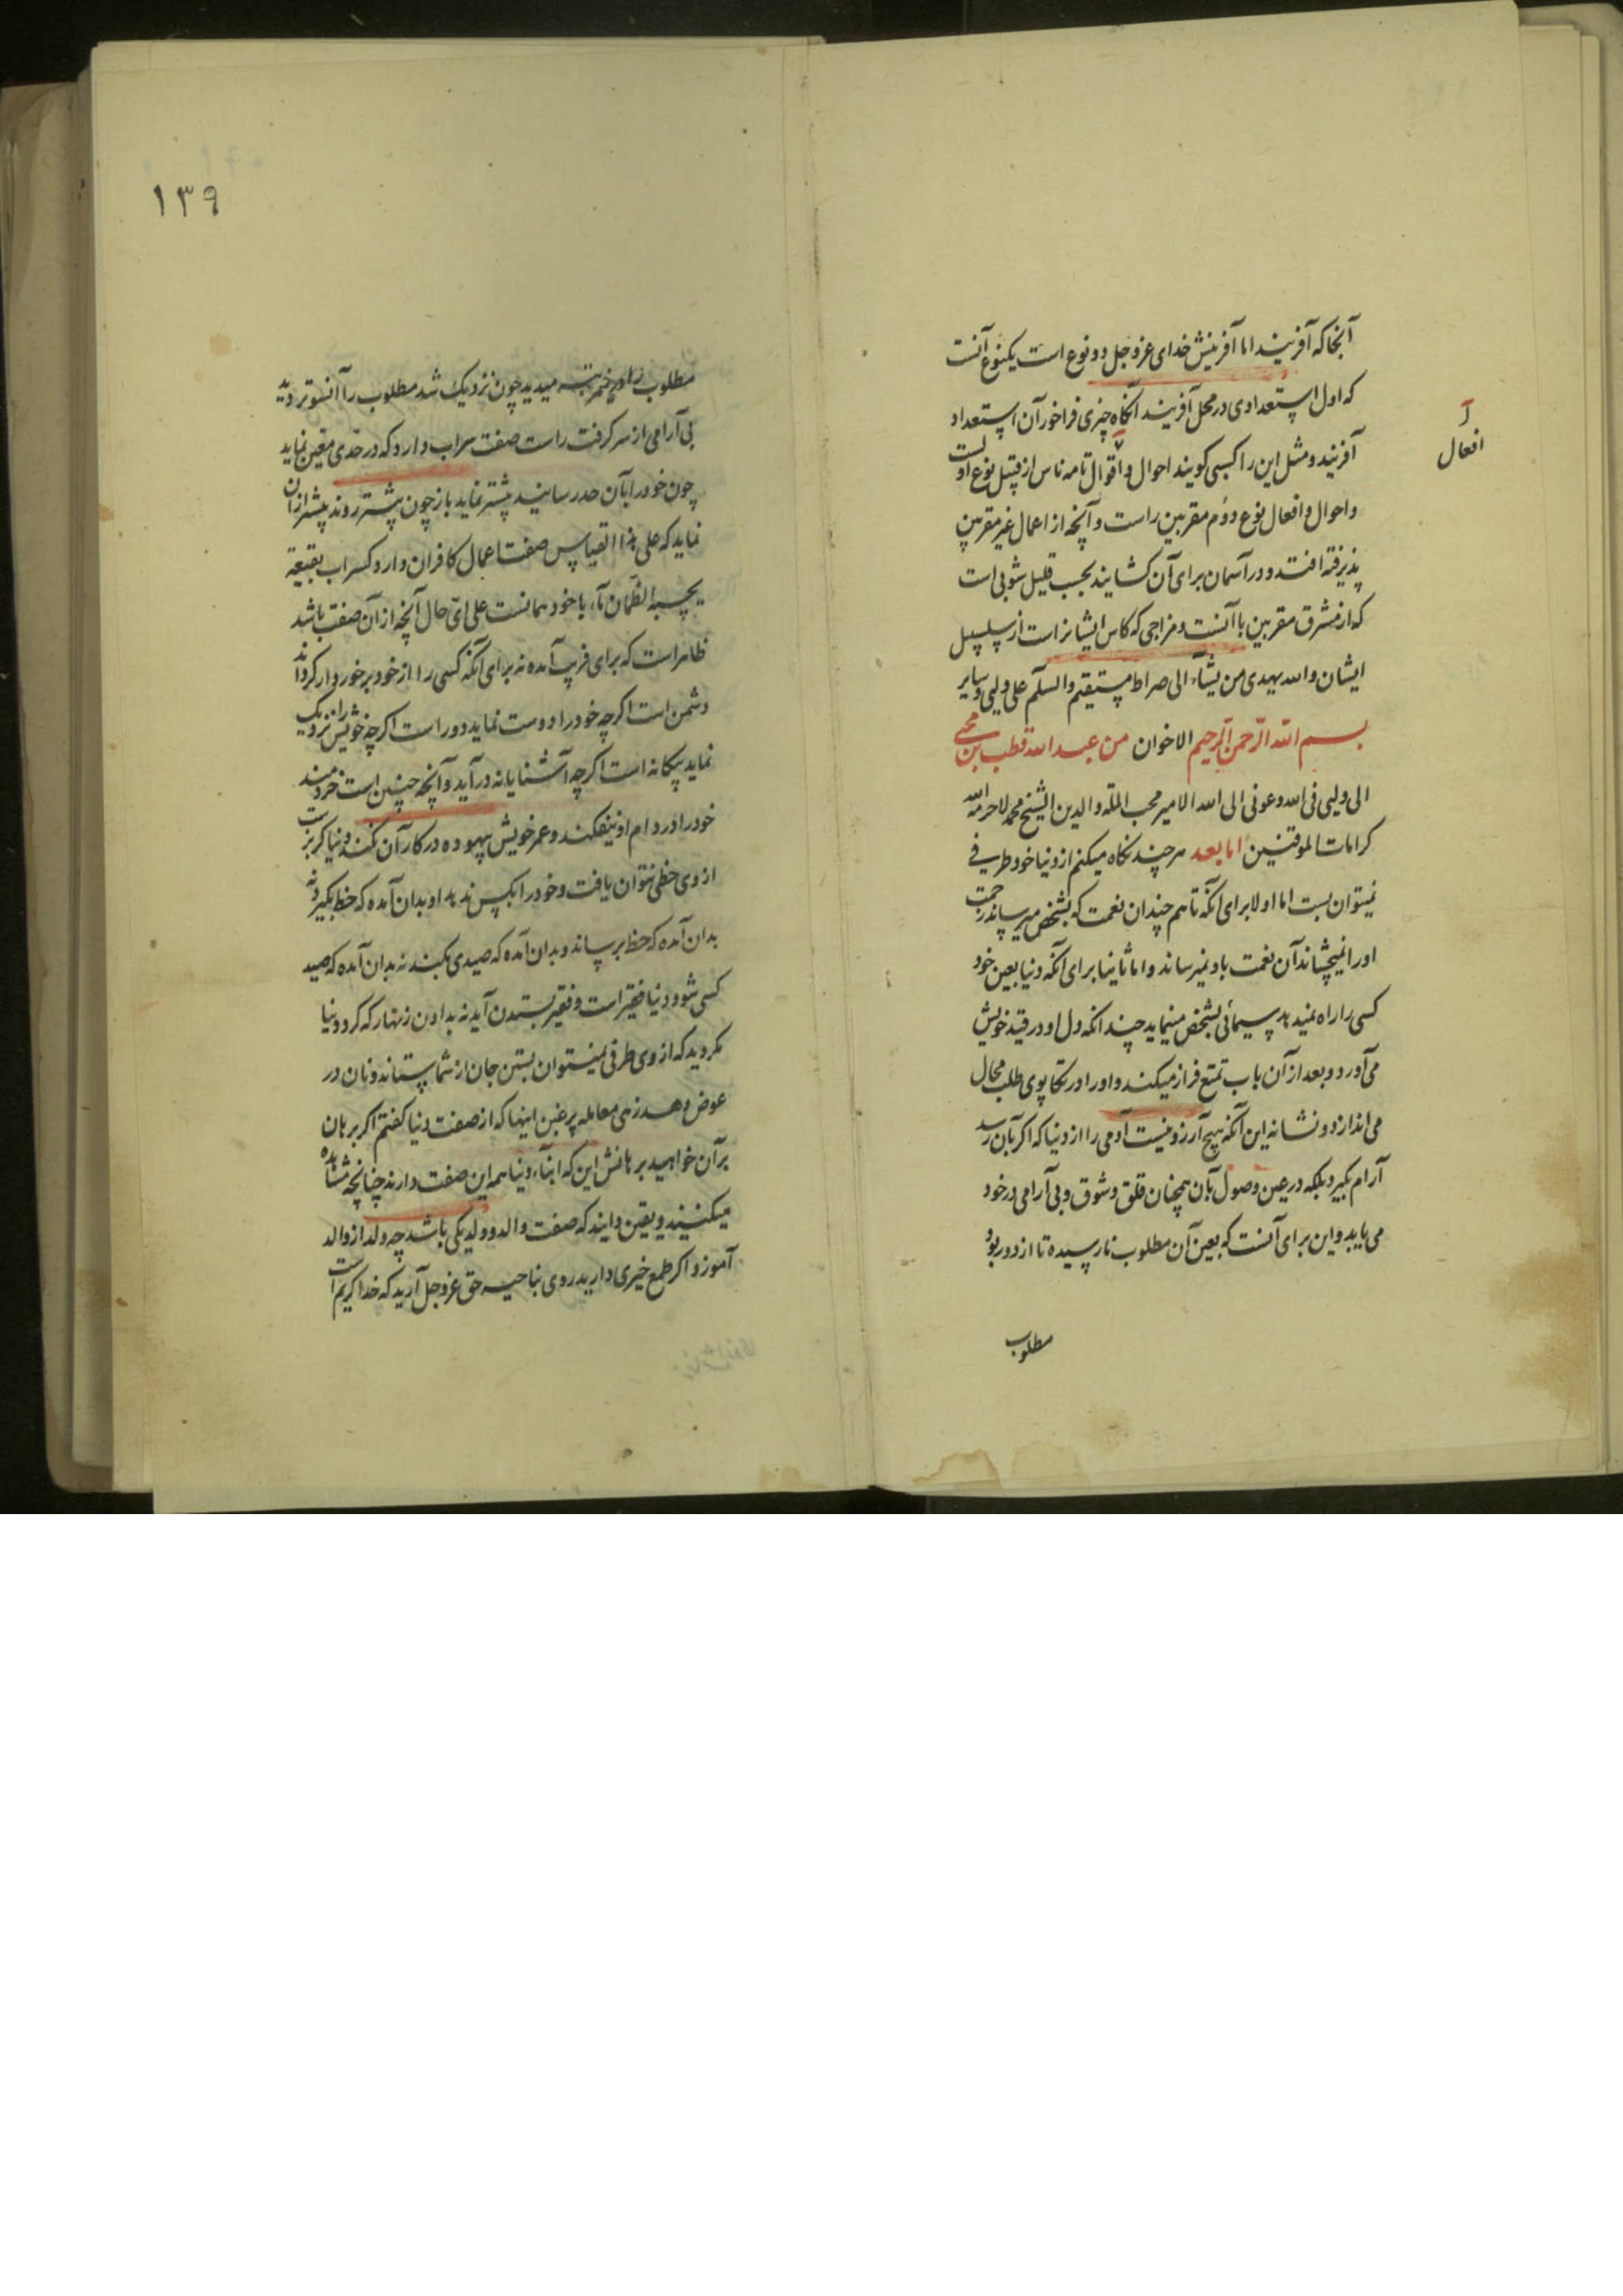 آنجا که آفریند اما آفرینش خدای عز و جل دو نوع است یکنوع آنست
که اول استعدادی در محل آفریند آنگاه چیزی فراخور آن استعداد
آفریند و مثل این را کسبی گویند احوال و اقوال تامه ناس از قبیل نوع اولست
افعال
و احوال و افعال نوع دوم مقربین راست و آنچه از اعمال غیر مقربین
پذیرفته افتد و در آسمان برای آن گشایند بحسب قلیل شوبی است
که از مشرق مقربین با آنست و مزاجی که کاس ایشانراست از سلسبیل
ایشان والله یهدی من یشآء الی صراط مستقیم والسلم علی ولیی و سایر
بسم الله الرحمن الرحیم الاخوان من عبد الله قطب بن محیی
الی ولیی فی الله و عونی الی الله الامیر محب الملة والدین الشیخ محمد لاحرمه الله
کرامات الموقنین اما بعد هر چند نگاه میکنم از دنیا خود طرفی
نمیتوان بست اما اولا برای آنکه تا هم چندان نعمت که بشخص میرساند زحمت
اورا نمیچشاند آن نعمت باو نمیرساند و اما ثانیا برای آنکه دنیا بعین خود
کسی را راه نمیدهد سیمائی بشخص مینماید چندانکه دل او در قید خویش
می‌آورد و بعد از آن باب تمتع فراز میکند و اورا در تکاپوی طلب محال
می اندازد و نشانه این آنکه هیچ آرزو نیست آدمی را از دنیا که اگر بآن رسد
آرام گیرد بلکه در عین وصول بآن همچنان قلق و شوق و بی آرامی در خود
می یابد و این برای آنست که بعین آن مطلوب نارسیده تا از دور بود
مطلوب
۱۳۹
مطلوب را در خیمه میدید چون نزدیک شد مطلوب را آنسوتر دید
بی آرامی از سر گرفت راست صفت سراب دارد که در حدی معین نماید
چون خود را بآن حد رسانند پیشتر نماید باز چون پیشتر روند پیشتر از آن
نماید که علی هذا القیاس صفت اعمال کافران دارد کسراب بقیعة
یحسبه الظمان مآء یا خود همانست علی ای حال آنچه از آن صفت باشد
ظاهر است که برای فریب آمده نه برای آنکه کسی را از خود برخوردار گرداند
دشمن است اگرچه خود را دوست نماید دور است اگرچه خویش را نزدیک
نماید بیگانه است اگرچه آشنایانه در آید و آنچه چنین است خردمند
خود را در دام او نیفکند و عمر خویش بیهوده در کار آن نکند دنیا گربزست
از وی حظی نتوان یافت و خود را بکس ندهد او بدان آمده که حظ بگیرد نه
بدان آمده که حظ برساند و بدان آمده که صیدی بکند نه بدان آمده که صید
کسی شود دنیا فقیر است و فقیر بستدن آید نه بدادن زنهار که گرد دنیا
نگردید که از وی طرفی نمیتوان بستن جان از شما بستاند و نان در
عوض دهد زهی معامله پر غبن اینها که از صفت دنیا گفتم اگر برهان
برآن خواهید برهانش این که ابنآء دنیا همه این صفت دارند چنانچه مشاهده
میکنید و یقین دانید که صفت والد و ولد یکی باشد چه ولد از والد
آموزد اگر طمع خیری دارید روی بناحیه حق عز و جل آرید که خدا کریم است